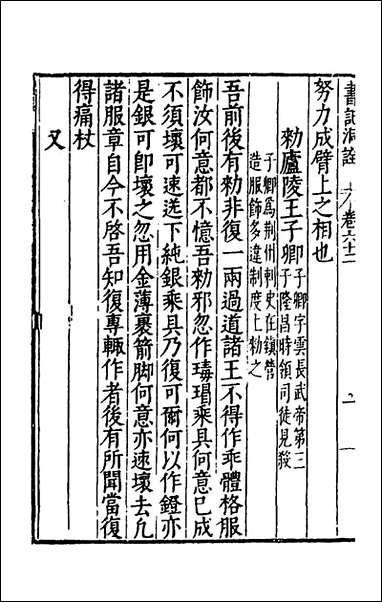 書記洞詮 卷六十二
努力成臂上之相也
勑廬陵王子卿 子卿字雲長武帝第三
子隆昌時領司徒見殺
子卿爲荆州刺史在鎮營
造服飾多違制度上勑之
吾前後有勑非復一兩過道諸王不得作乖體格服
飾汝何意都不憶吾勑邪忽作瑇瑁乘具何意已成
不須壞可速送下純銀乘具乃復可爾何以作鐙亦
是銀可卽壞之忽用金薄裹箭脚何意亦速壞去凡
諸服章自今不啓吾知復專輒作者後有所聞當復
得痛杖
又